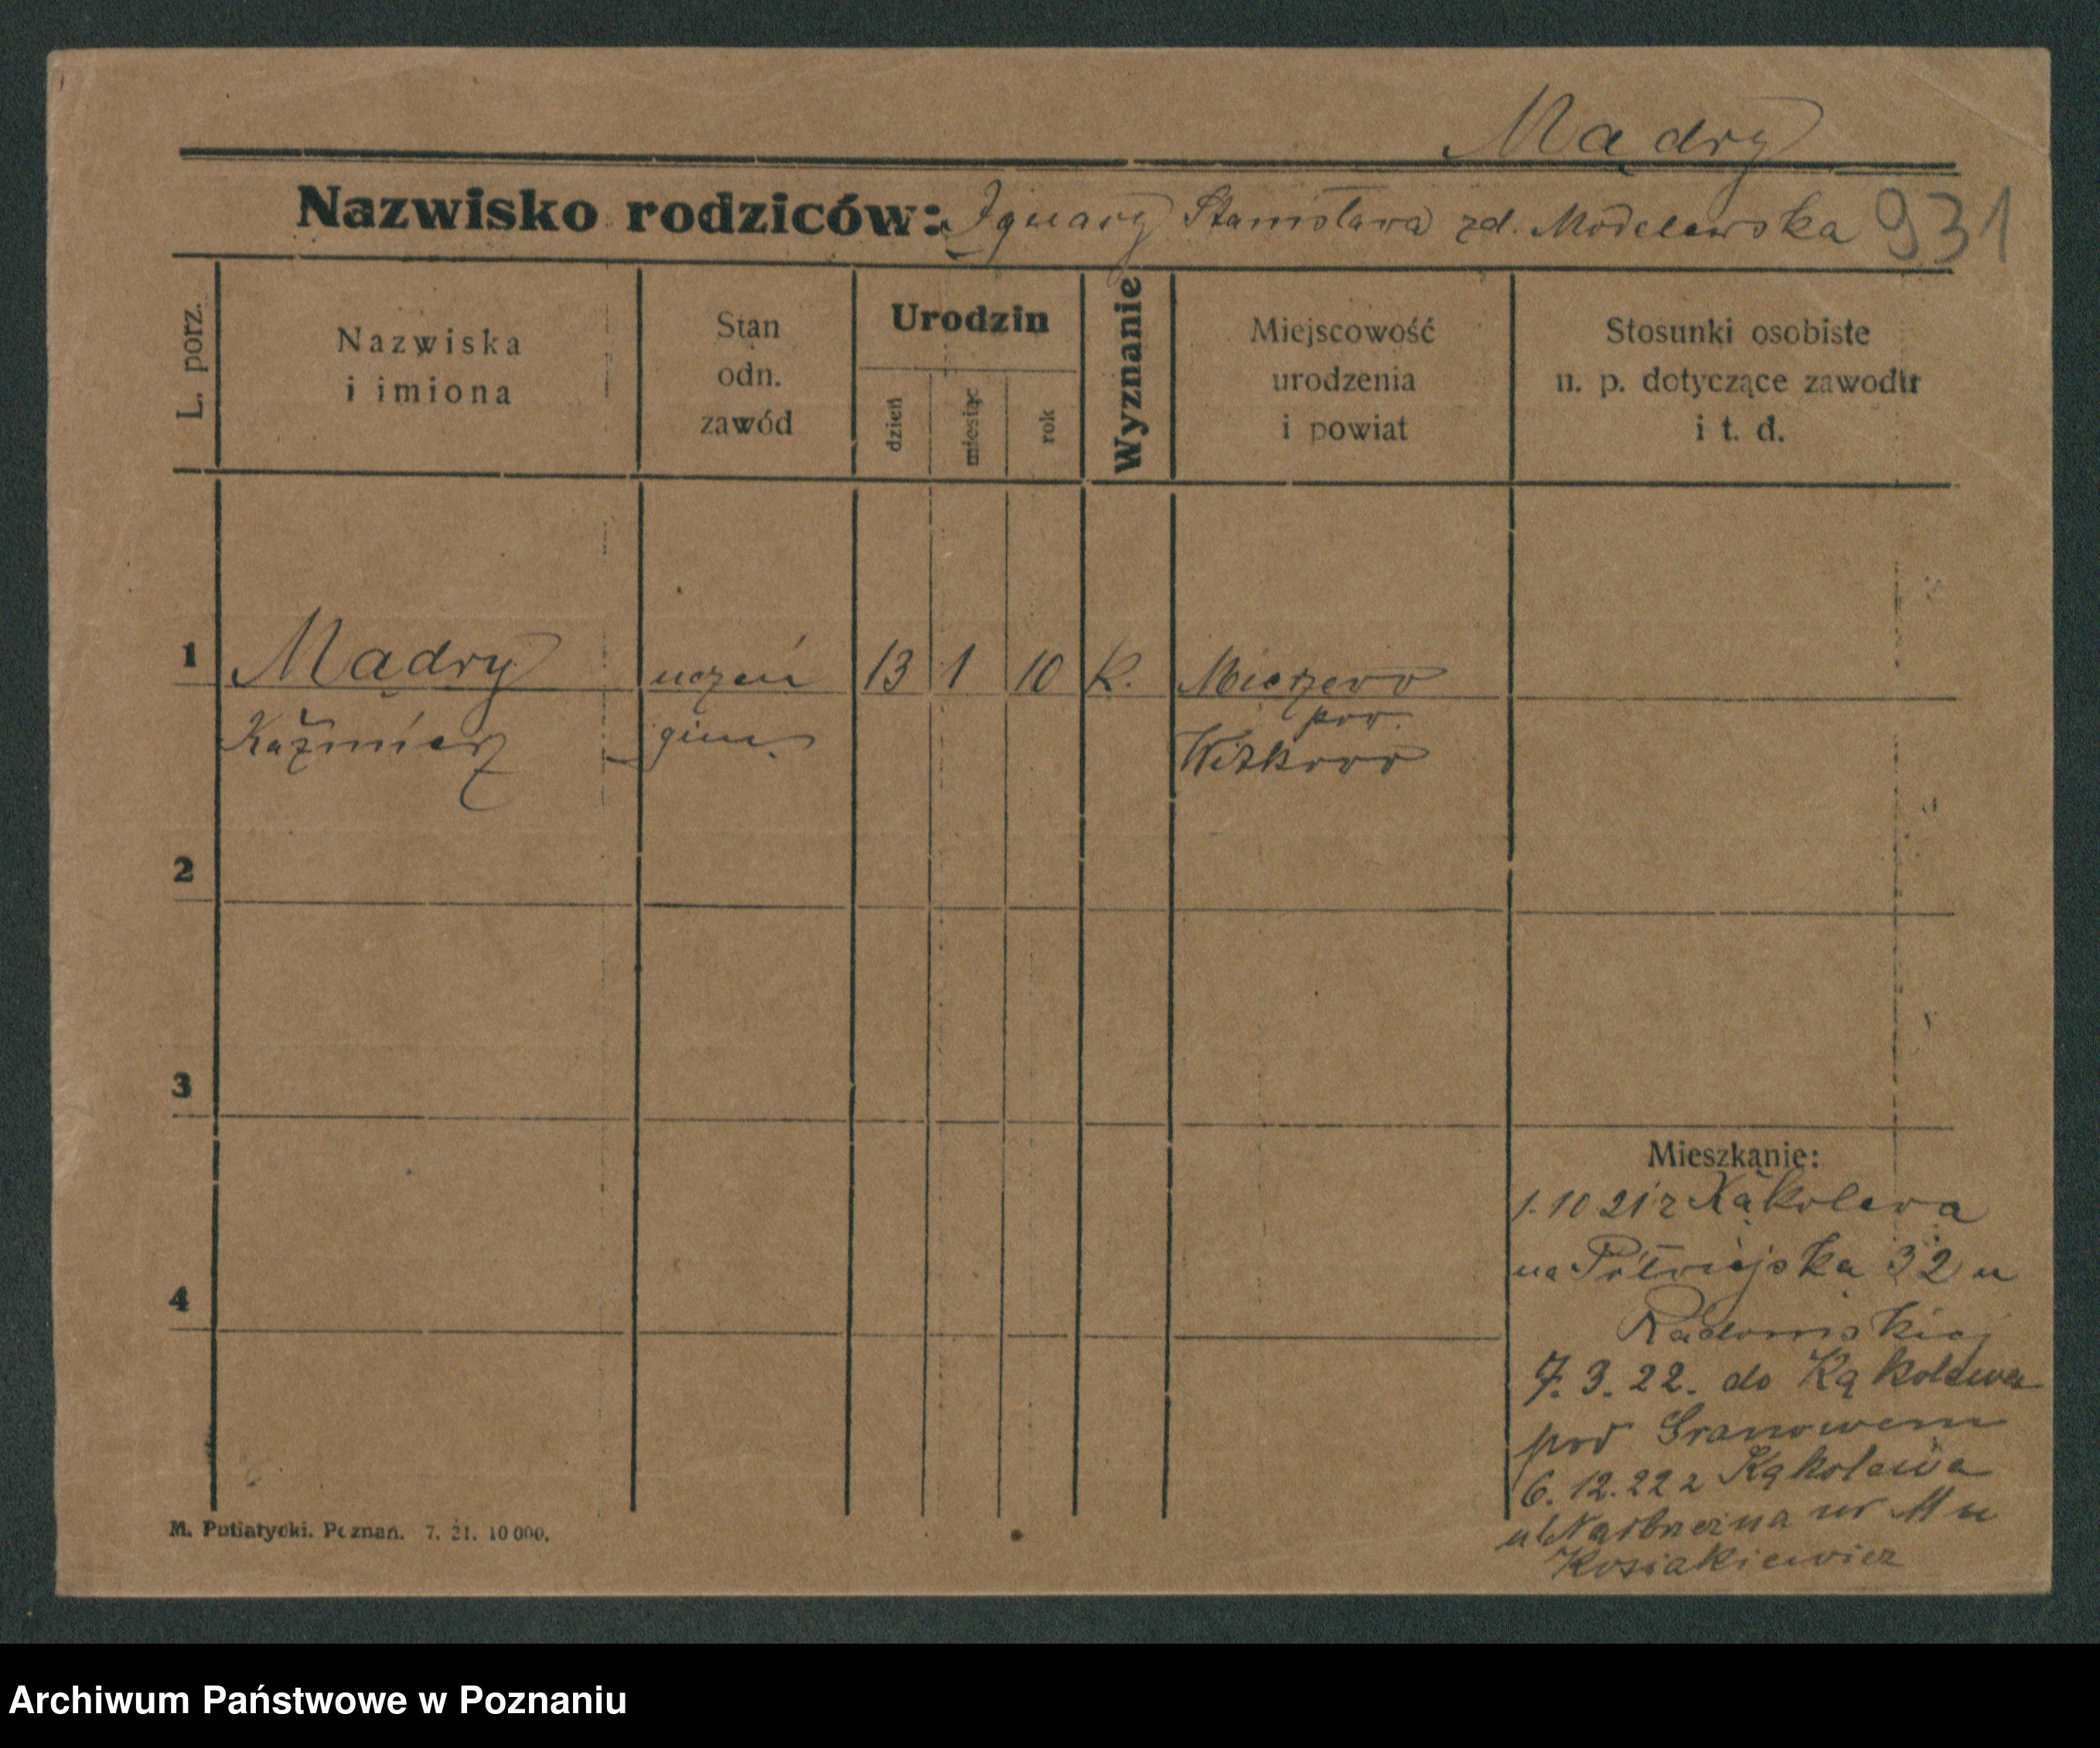 Mądry
Nazwisko rodziców: Ignacy Stanisława zd. Modelewska 931
L. porz.
Nazwiska
i imiona
Stan
odn.
zawód
Urodzin
dzień
miesiąc
rok
Wyznanie
Miejscowość
urodzenia
i powiat
Stosunki osobiste
n. p. dotyczące zawodu
i t. d.
1 Mądry uczeń 13 1 10 k. Mierzewo
Kaźmierz gimn. pow.
Witkowo
2
3
4
Mieszkanie:
1.10 21 z Kąkolewa
na Półwiejska 32 u
Radomskiej
7. 3. 22. do Kąkolewa
pod Granowem
6. 12. 22 z Kąkolewa
ul nr 11 u
Kosiakiewicz
M. Putiatycki. Poznań. 7. 21. 10 000.
Archiwum Państwowe w Poznaniu